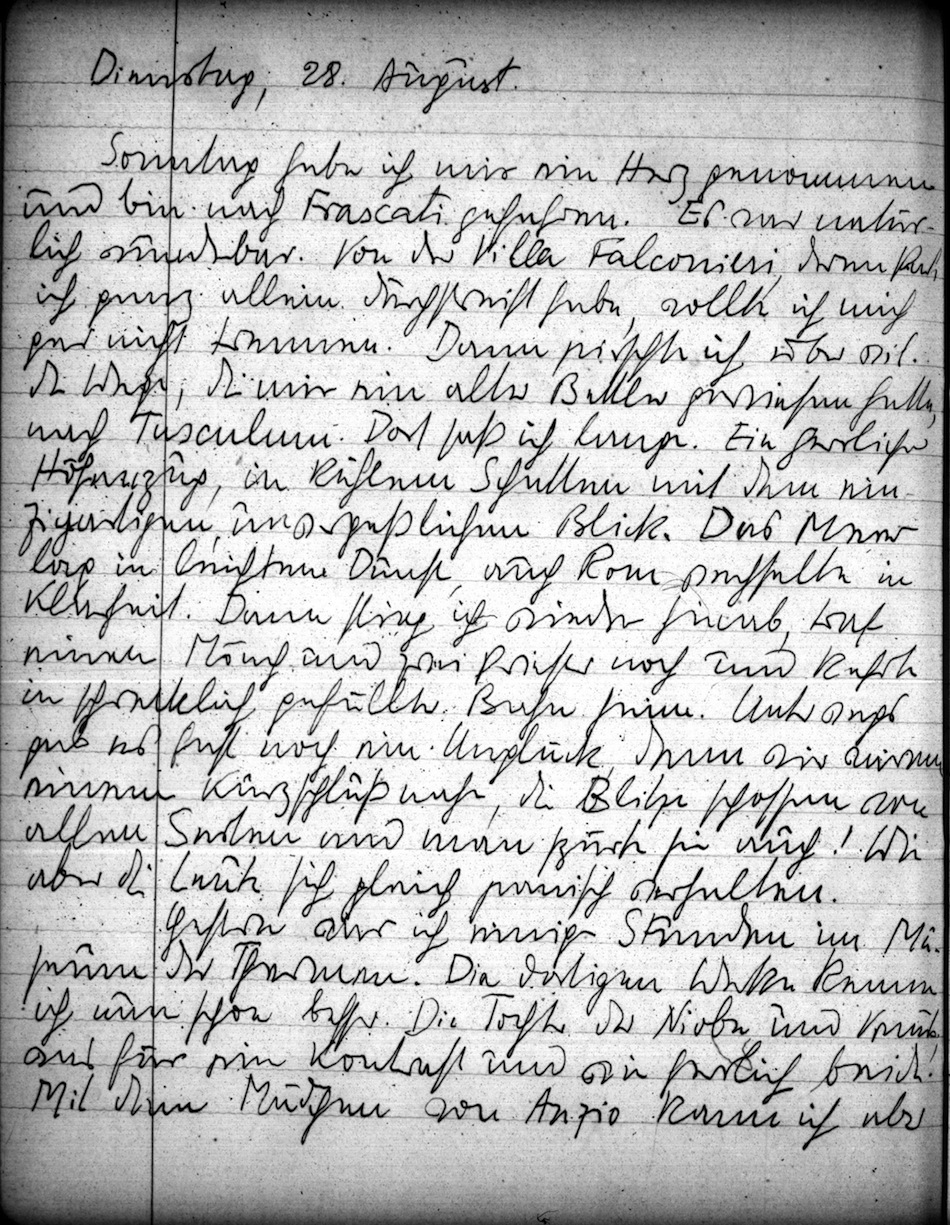 Dienstag, 28. August.
Sonntag habe ich mir ein Herz genommen
und bin nach Frascati gefahren. Es war natür-
lich wunderbar. Von der Villa Falconieri, deren Park
ich ganz allein durchstreift habe, wollte ich mich
gar nicht trennen. Dann pirschte ich über wil-
de Wege, die mir ein alter Bettler gewiesen hatte,
nach Tusculum. Dort saß ich lange. Ein herrlicher
Höhenzug, im kühlen Schatten mit dem ein-
zigartigen, unvergeßlichen Blick. Das Meer
lag in leichtem Dunst, auch Rom wechselte in
Klarheit. Dann stieg ich wieder hinab, traf
einen Mönch und zwei Priester noch und kehrte
in schrecklich gefüllter Bahn heim. Unterwegs
gab es fast noch ein Unglück, denn wir waren
einem Kurzschluß nahe, die Blitze schossen von
allen Seiten und man spürte sie auch! Wie
aber die Leute sich gleich panisch verhalten.
Gestern war ich einige Stunden im Mu-
seum der Thermen. Die dortigen Werke kenne
ich nun schon besser. Die Tochter der Niobe und Venus
was für ein Kontrast und wie herrlich beide!
Mit dem Mädchen von Anzio kann ich aber